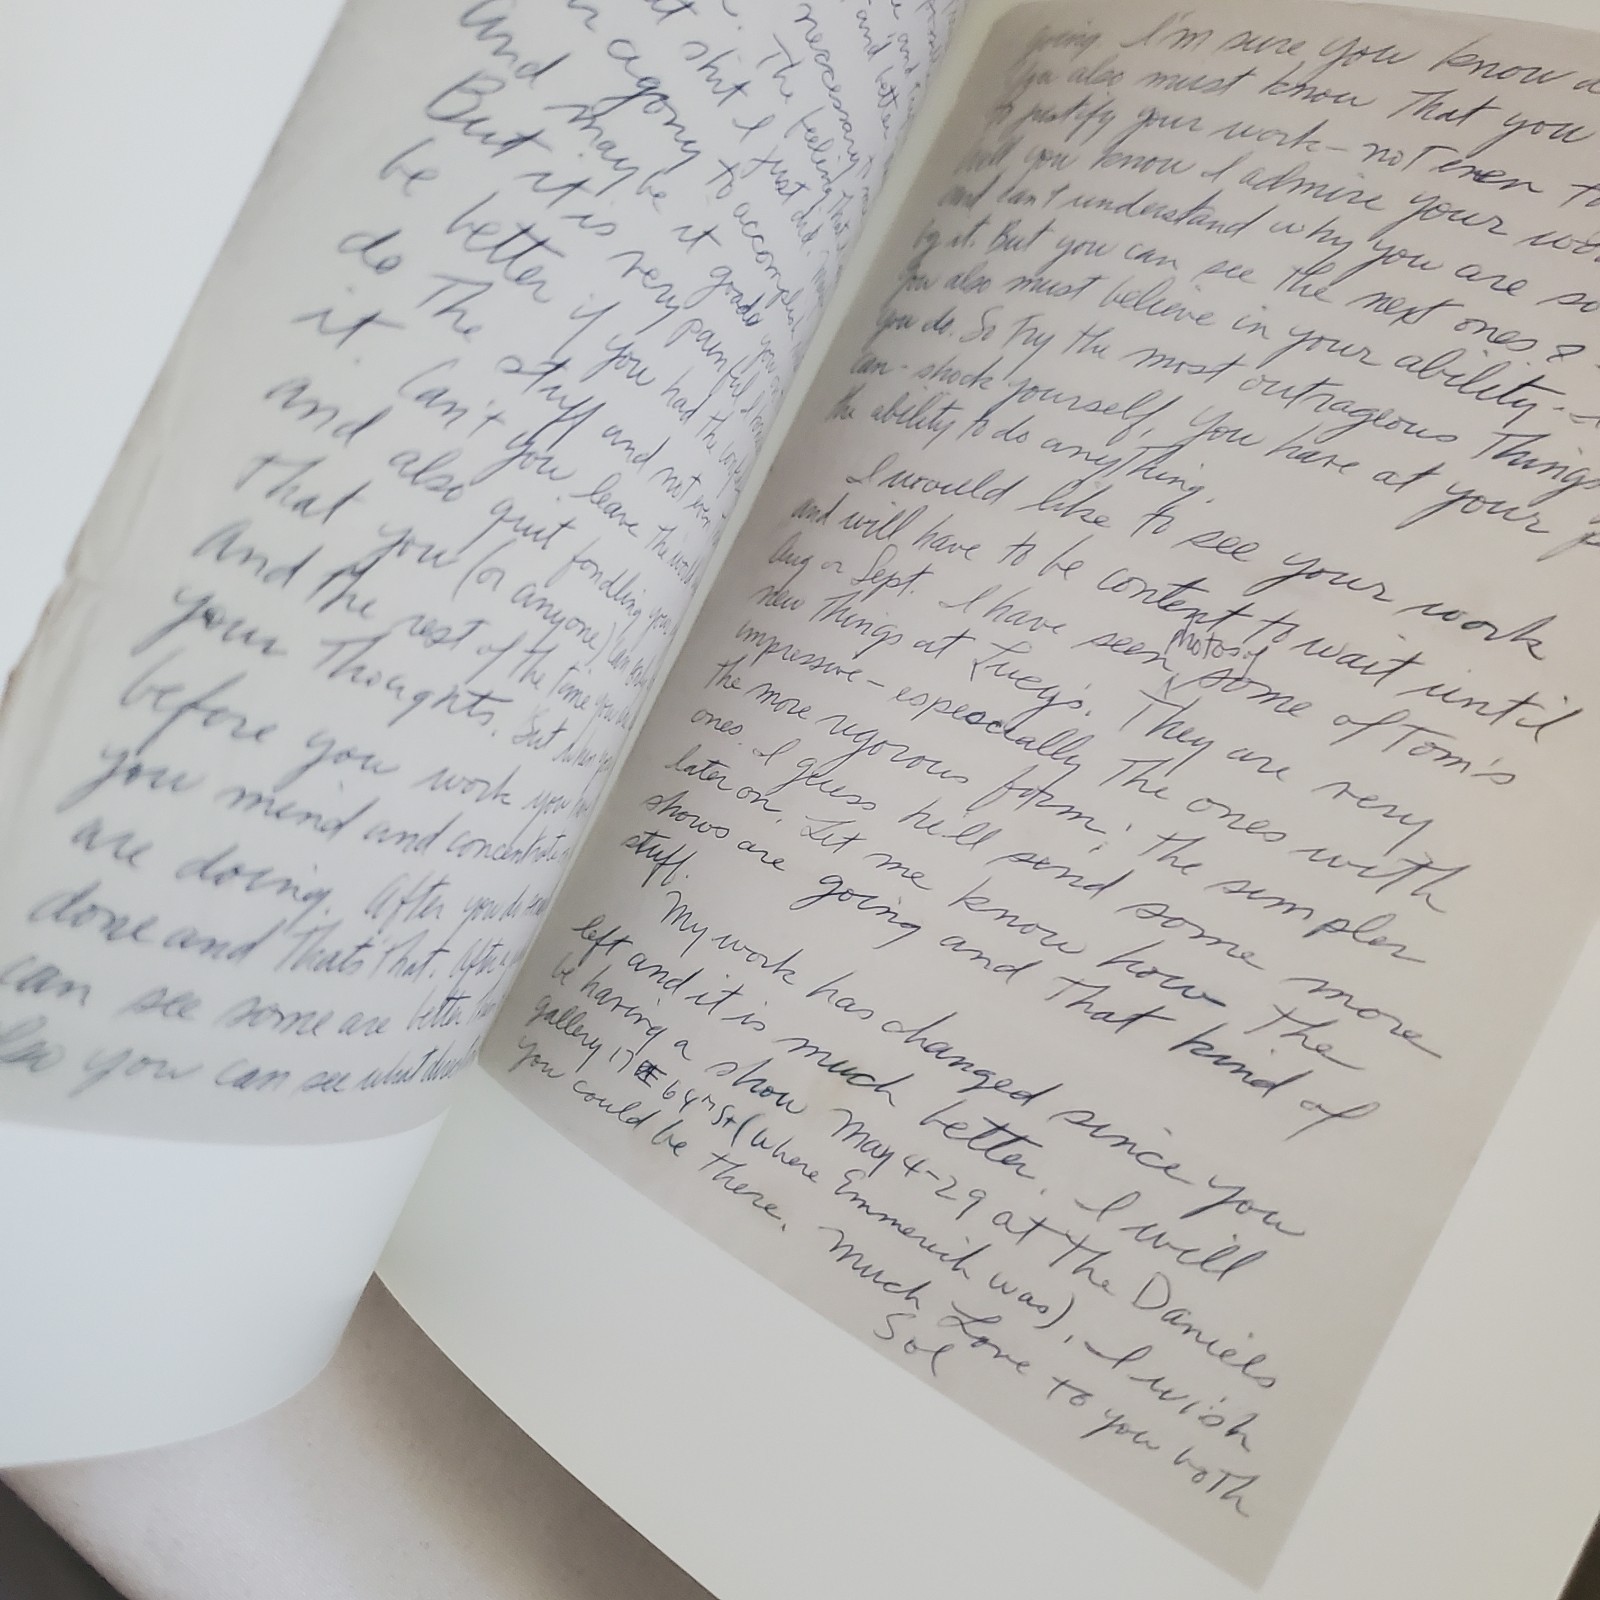 at shit I just did.
in agony to accomplish
And maybe it goads you
But it is very painful I know
be better if you had the
do the stuff and not even
it. Can't you leave the world
and also quit fondling your
that you (or anyone) can only
and the rest of the time you are
your thoughts. But when you
before you work you
you mind and concentrate
are doing. After you do
done and that's that. After a
can see some are better
also you can see what
necessary to
The feeling that
going. I'm sure you know
You also must know that you
to justify your work – not even to
Well you know I admire your work
and can't understand why you are so
by it. But you can see the next ones &
You also must believe in your ability.
you do. So try the most outrageous things
can – shock yourself, you have at your
the ability to do anything.
I would like to see your work
and will have to be content to wait until
Aug or Sept. I have seen photos of some of Tom's
new things at Lucy's. They are very
impressive – espescially the ones with
the more rigorous form; the simpler
ones. I guess he'll send some more
later on. Let me know how the
shows are going and that kind of
stuff.
My work has changed since you
left and it is much better. I will
be having a show May 4-29 at the Daniels
gallery 17 E 64th St (where Emmerich was), I wish
you could be there. Much Love to you both
Sol